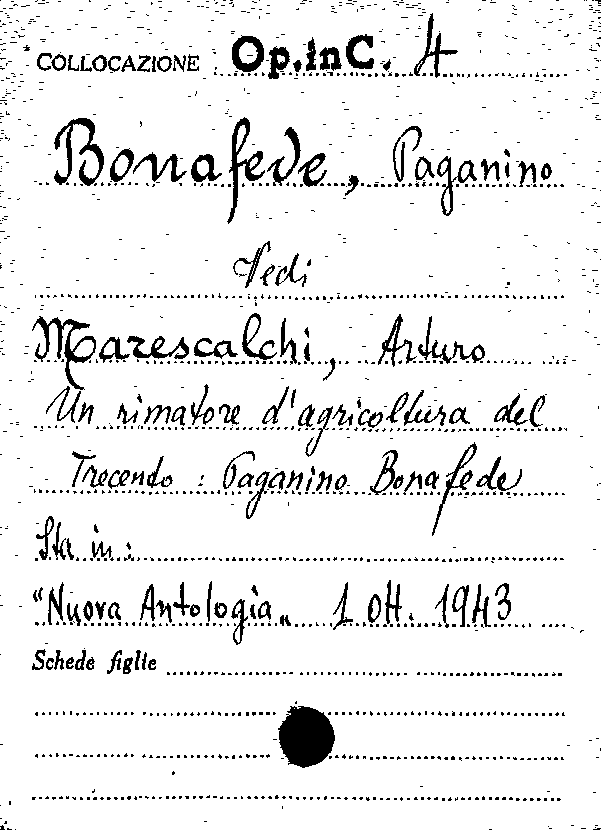 COLLOCAZIONE : Op.inC. 4
Bonafede, Paganino
Vedi
Marescalchi, Arturo
Un rimatore d'agricoltura del
Trecento : Paganino Bonafede
Sta in :
"Nuova Antologia„ 1 Ott. 1943
Schede figlie